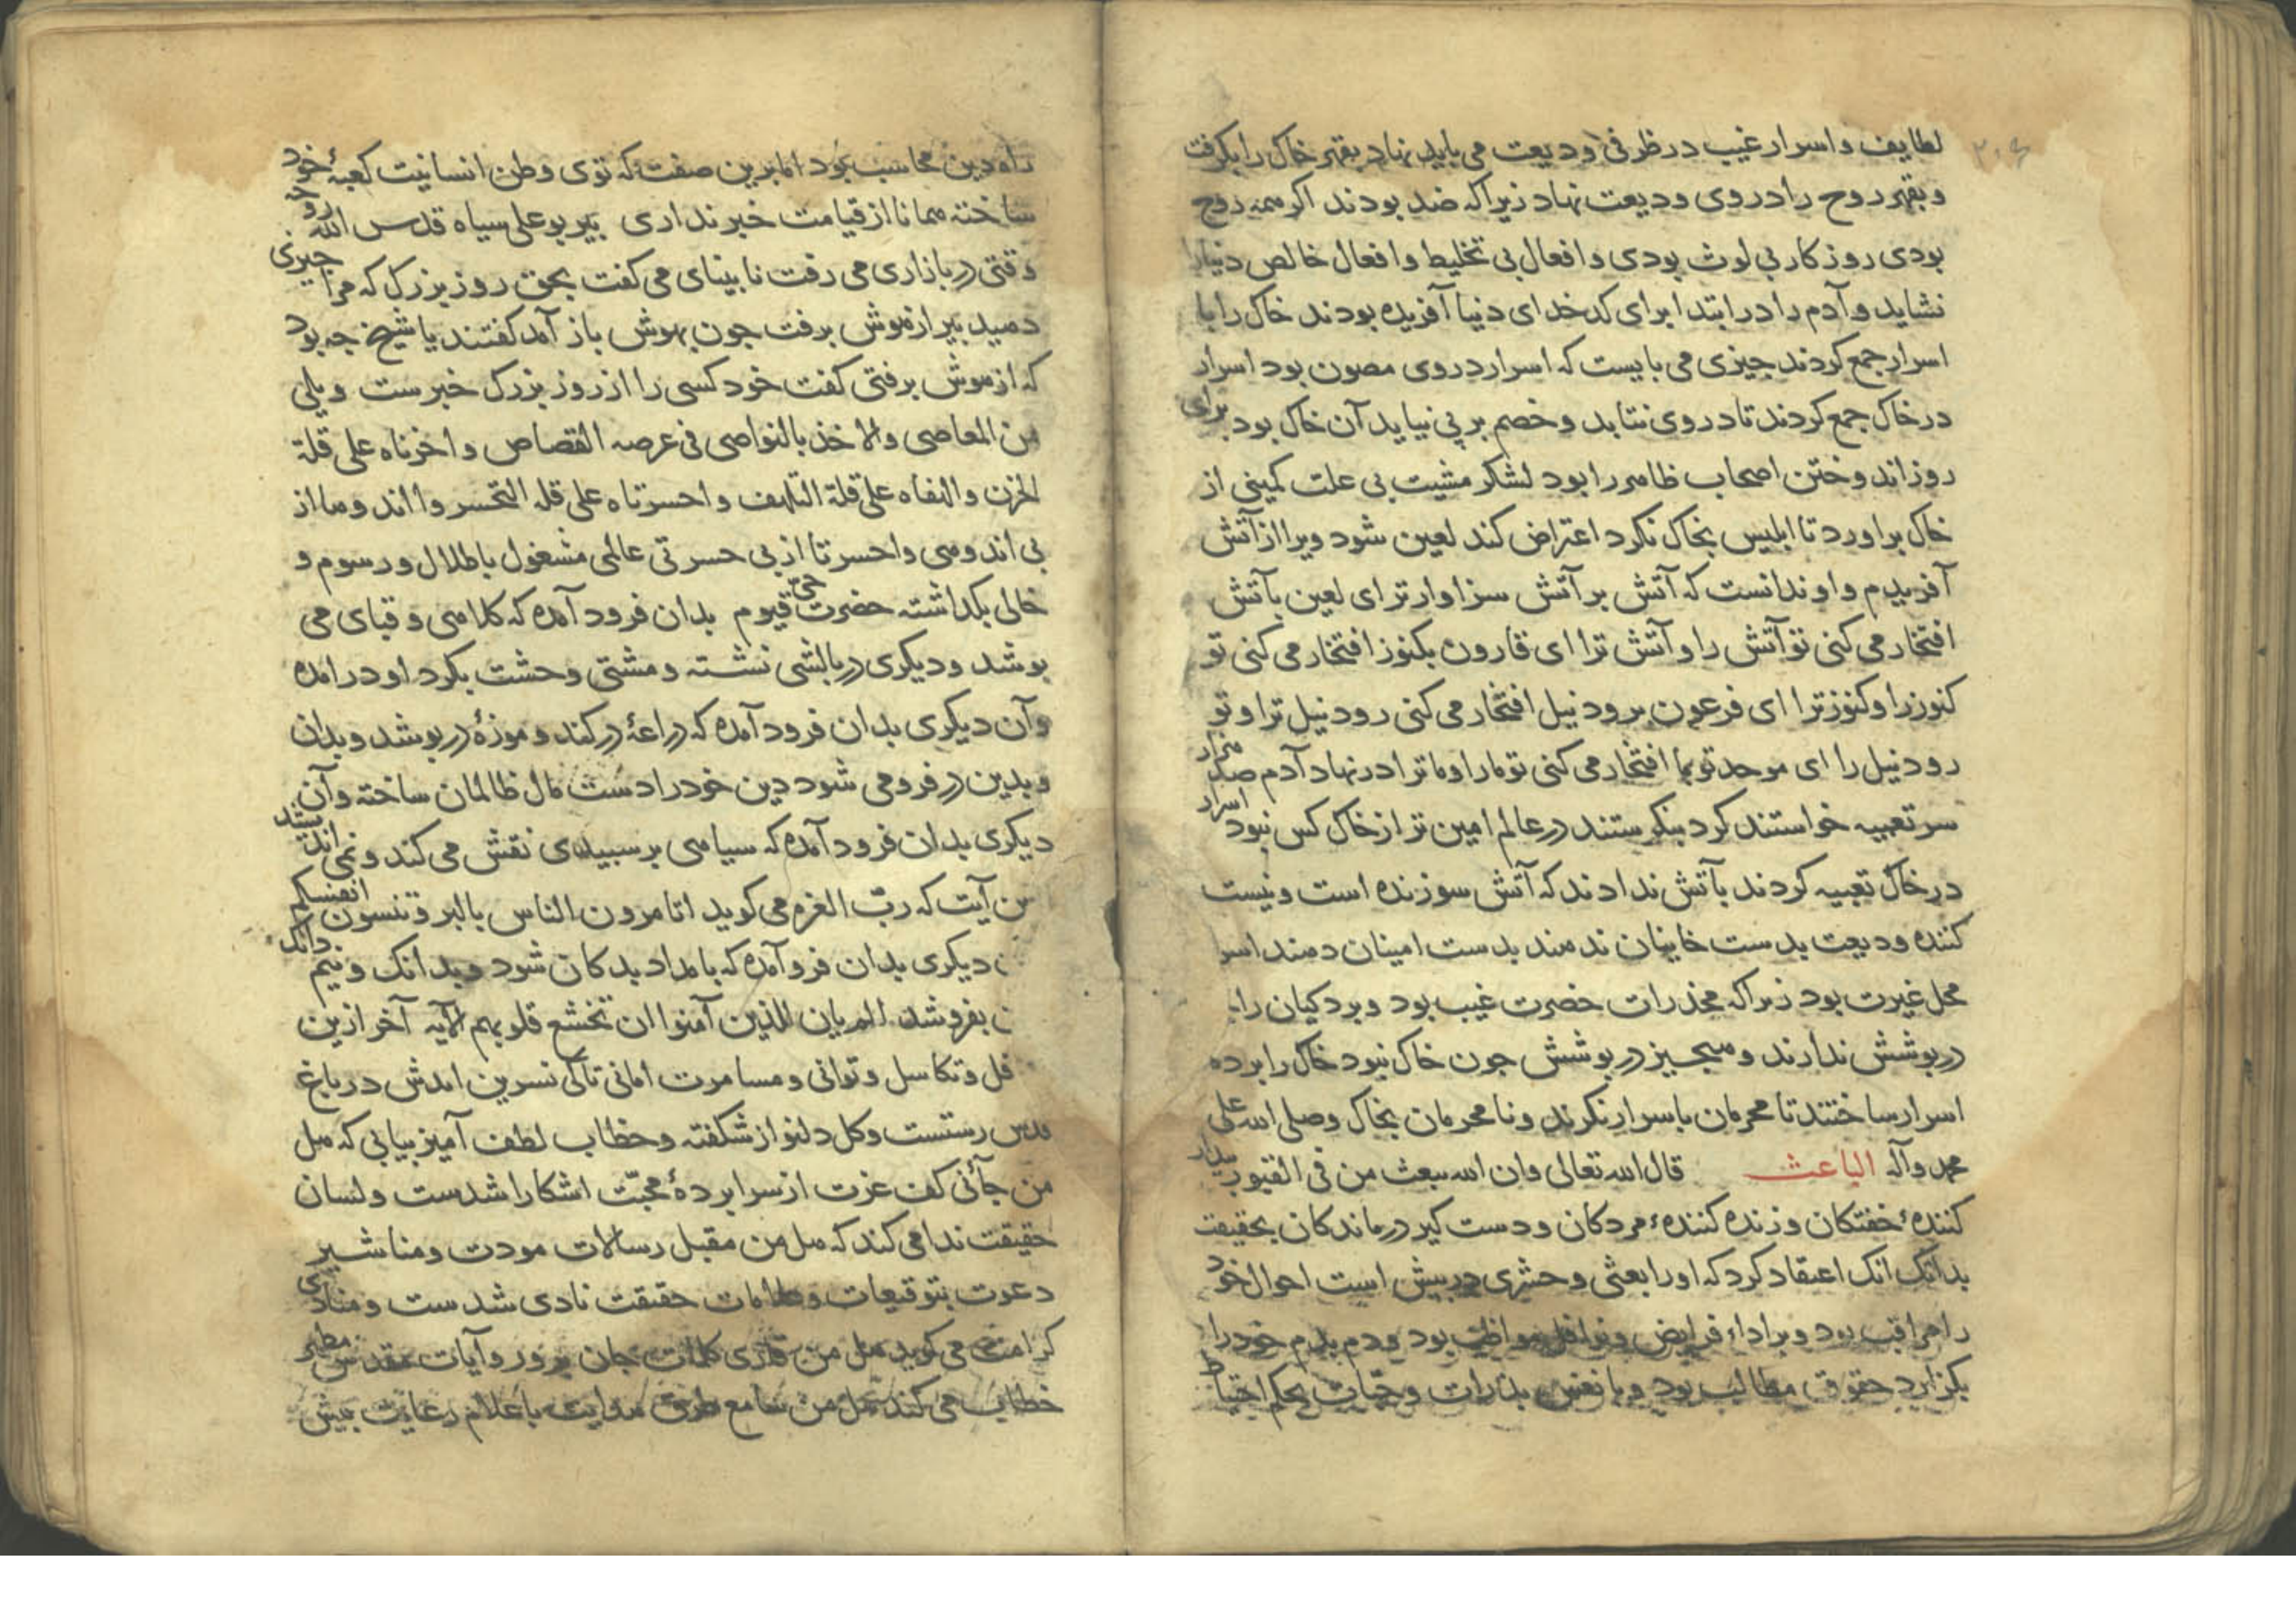 ۲۰۶
لطایف و اسرار غیب در ظرفی ودیعت می باید نهاد بقهر خاک را بگرفت
و بقهر روح را در وی ودیعت نهاد زیرا که ضد بودند اگر همه روح
بودی روزکار بی لوث بودی و افعال بی تخلیط و افعال خالص دنیا را
نشاید و آدم را در ابتدا برای کدخدای دنیا آفریده بودند خاک را با
اسرار جمع کردند جیزی می بایست که اسرار در وی مصون بود اسرار
در خاک جمع کردند تا در وی نتابد و خصم بر پی نیاید آن خاک بود برای
روز اندوختن اصحاب ظاهر را بود لشکر مشیت بی علت کمینی از
خاک براورد تا ابلیس بخاک نکرد اعتراض کند لعین شود ویرا از آتش
آفریدم و او ندانست که آتش بر آتش سزاوارتر ای لعین بآتش
افتخار می کنی تو آتش را و آتش ترا ای قارون بکنوز افتخار می کنی تو
کنوز را و کنوز ترا ای فرعون برود نیل افتخار می کنی رود نیل ترا و تو
رود نیل را ای موحد تو بما افتخار می کنی تو ما را و ما ترا در نهاد آدم صد هزار
سر تعبیه خواستند کرد بنکرستند در عالم امین تر از خاک کس نبود اسرار
در خاک تعبیه کردند بآتش ندادند که آتش سوزنده است و نیست
کننده ودیعت بدست خاینان ندهند بدست امینان دهند اسرا
محل غیرت بود زیراکه مخدرات حضرت غیب بود و بردکیان را
در پوشش ندارند و هیجیز در پوشش جون خاک نبود خاک را برده
اسرار ساختند تا محرمان باسرار نکرند و نا محرمان بخاک وصلی الله علی
محمد وآله الباعث قال الله تعالی وان الله یبعث من فی القبور بیدار
کننده خفتکان و زنده کننده مردکان و دست کیر درماندکان بحقیقت
بدانک انک اعتقاد کرد که او را بعثی و حشری در پیش است احوال خود
را مراقب بود و بر اداء فرایض و نوافل مواظب بود و دم بدم خود را
بکزارد حقوق مطالب بود و با نفس بذرات و حبات بحکم احتیاط
راه دین محاسب بود اما برین صفت که توی وطن انسانیت کعبه خود
ساخته همانا از قیامت خبر نداری بیر بو علی سیاه قدس الله روحه
وقتی در بازاری می رفت نابینای می کفت بحق روز بزرک که مرا جیزی
دهید بیر از هوش برفت جون بهوش باز آمد کفتند یا شیخ جه بود
که از هوش برفتی کفت خود کسی را از روز بزرک خبرست ویلی
من المعاصی والاخذ بالنواصی فی عرصه القصاص واحزناه علی قلة
الحزن والهفاه علی قلة التلهف واحسرتاه علی قله التحسر وا اندوها از
بی اندوهی واحسرتا از بی حسرتی عالمی مشغول باطلال و رسوم و
خالی بکذاشته حضرت حی قیوم بدان فرود آمده که کلاهی و قبای می
بوشد و دیکری در بالشی نشسته و مشتی وحشت بکرد او درامده
وآن دیکری بدان فرود آمده که دراعهٔ درکند و موزهٔ در بوشد و بدان
و بدین در فرو می شود دین خود را دست مال ظالمان ساخته وآن
دیکری بدان فرود آمده که سیاهی بر سبیدی نقش می کند و نمی اندیشد
من آیت که رب العزه می کوید اتامرون الناس بالبر وتنسون انفسکم
دیکری بدان فرو آمده که بامداد بدکان شود و بدانک و نیم دانک
بفروشد الم یان للذین آمنوا ان تخشع قلوبهم الآیه آخر ازین
فل و تکاسل و توانی و مسامرت امانی تا کی نسرین امدش در باغ
قدس رستست و کل دلنواز شکفته و خطاب لطف آمیز بیابی که هل
من جآئی کف عزت از سرابردهٔ محبت اشکارا شدست ولسان
حقیقت ندا می کند که هل من مقبل رسالات مودت ومناشیر
دعوت بتوقیعات و طامات حقیقت نادی شدست و منادی
کرامت می کوید هل من قاری کلمات جان برور وآیات مقدس مطهر
خطاب می کند هل من سامع طرق هدایت باعلام رعایت بیش